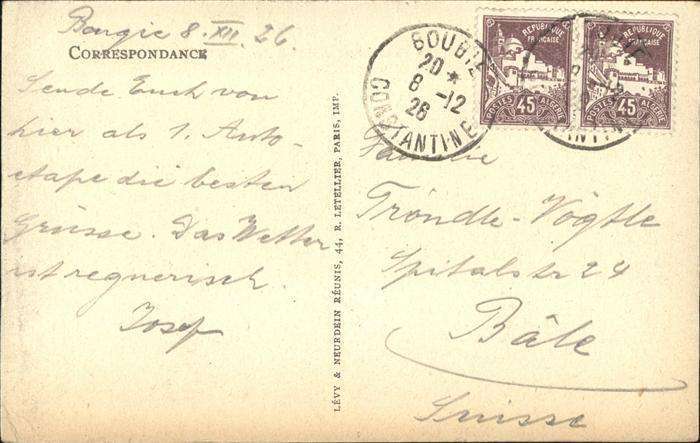 Bougie 8. XII. 26.
CORRESPONDANCE
Sende Euch von
hier als 1. Auto-
etape die besten
Grüsse. Das Wetter
ist regnerisch.
Josef
LÉVY & NEURDEIN RÉUNIS, 44, R. LETELLIER, PARIS, IMP.
BOUGIE
20 *
8 -12
26
CONSTANTINE
RÉPUBLIQUE
FRANÇAISE
POSTES ALGÉRIE
45
RÉPUBLIQUE
FRANÇAISE
POSTES ALGÉRIE
45
Familie
Tröndle-Vögtle
Spitalstr 24
Bâle
Suisse